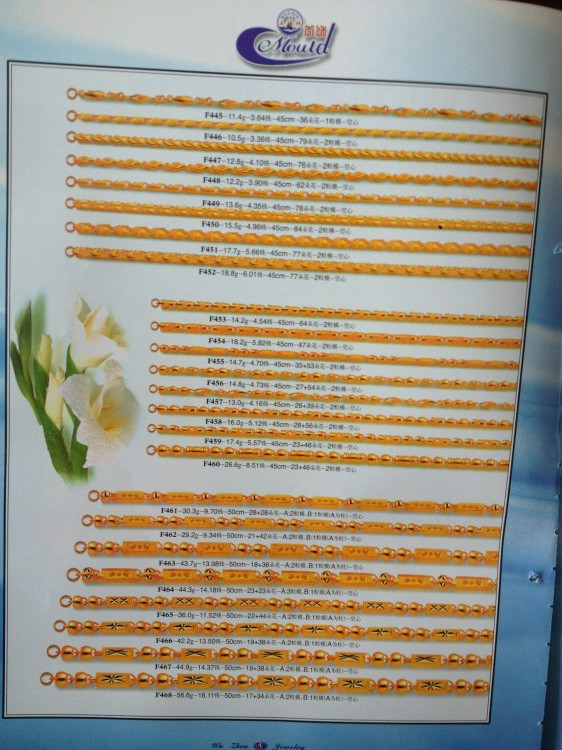 首饰
Mould
F445-11.4g-3.64钱-45cm-36朵花-1粒模-空心
F446-10.5g-3.36钱-45cm-79朵花-2粒模-空心
F447-12.8g-4.10钱-45cm-76朵花-2粒模-空心
F448-12.2g-3.90钱-45cm-62朵花-2粒模-空心
F449-13.6g-4.35钱-45cm-78朵花-2粒模-空心
F450-15.5g-4.96钱-45cm-84朵花-2粒模-空心
F451-17.7g-5.66钱-45cm-77朵花-2粒模-空心
F452-18.8g-6.01钱-45cm-77朵花-2粒模-空心
F453-14.2g-4.54钱-45cm-64朵花-2粒模-空心
F454-18.2g-5.82钱-45cm-47朵花-2粒模-空心
F455-14.7g-4.70钱-45cm-35+53朵花-2粒模-空心
F456-14.8g-4.73钱-45cm-27+54朵花-2粒模-空心
F457-13.0g-4.16钱-45cm-26+39朵花-2粒模-空心
F458-16.0g-5.12钱-45cm-28+56朵花-2粒模-空心
F459-17.4g-5.57钱-45cm-23+46朵花-2粒模-空心
F460-26.6g-8.51钱-45cm-23+46朵花-2粒模-空心
F461-30.3g-9.70钱-50cm-28+28朵花-A:2粒模.B:1粒模(A为柱)-空心
F462-29.2g-9.34钱-50cm-21+42朵花-A:2粒模.B:1粒模(A为柱)-空心
F463-43.7g-13.98钱-50cm-18+36朵花-A:2粒模.B:1粒模(A为柱)-空心
F464-44.3g-14.18钱-50cm-23+23朵花-A:3粒模.B:1粒模(A为柱)-空心
F465-36.0g-11.52钱-50cm-22+44朵花-A:2粒模.B:1粒模(A为柱)-空心
F466-42.2g-13.50钱-50cm-19+38朵花-A:2粒模.B:1粒模(A为柱)-空心
F467-44.9g-14.37钱-50cm-19+38朵花-A:2粒模.B:1粒模(A为柱)-空心
F468-56.6g-18.11钱-50cm-17+34朵花-A:2粒模.B:1粒模(A为柱)-空心
Wu Zhou Jewelry